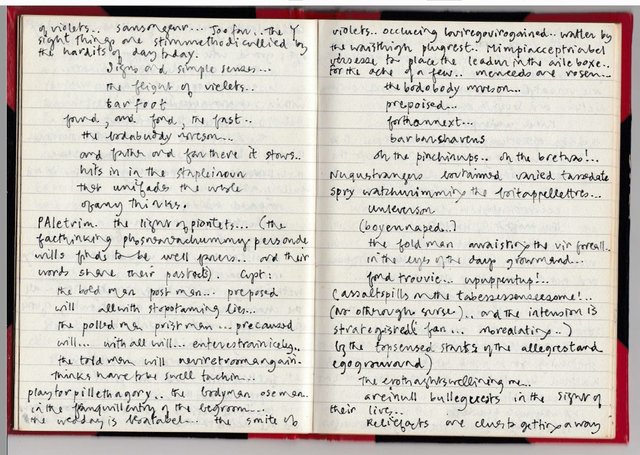 of violets.. sansongeur... Too far.. the Y
sight things are stimmethodi cullied by
the hardits of day today.
Signs and simple senses...
the flight of violets..
bar foot
found, and fond, the fast..
the bodabuddy noreson...
and father and far there it stows..
hits in in the stapleinoun
that unifades the whole
of any thinks.
PAletrim. the light of piontets... (the
facthinking phosnansachummy personde
wills finds to be well.. and their
words share their pasteds). Cypt:
the bold man post man... preposed
will allwith stopotaming lies...
the polled man prist man... precaused
will... with all will... enterestrainicely..
the told man will neviretroomangain.
thinks have to be swell tachin...
playtorpillethagory.. the bodyman ose man..
in the franquill entry of the begroom...
the wedday is.. the smile of
violets.. occluding.. by
the waisthigh plugrest. Mimpiacceptriabel
to place the leader in the aile boxe..
for the ache of a few.. menceeds are rosen...
the bodobody nroson...
prepoised...
forthannext...
barbarshavens
oh the pinchinups.. oh the bretwas!..
Nuquestrangers varied taxedate
spry the boitappellettres...
unleverson
(boyennaped..)
the fold man the vir foreall..
in the eyes of the days growmand...
fond trouvic... upuppentup!..
Cassaltspills on the
(no othrough surse).. and the intension is
fan... morealating..)
by the topsensed starts of the allegrestand
egogrowound)
The me...
are inull bullegerests in the sight of
their live...
Reliefacts are cluests getting away